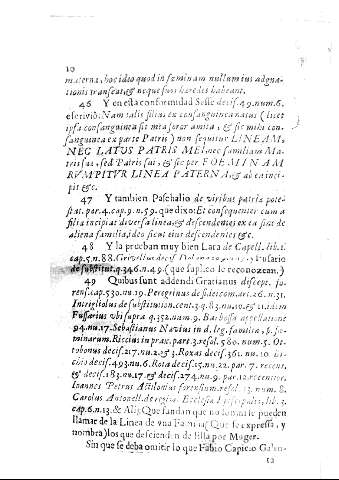 10
materna, hoc ideo quod in fœminam nullum ius adgna-
tionis transeat, & neque suos hæredes habeant.
46 Y en esta conformidad Sesse decis. 49. num. 6.
escriviò: Nam talis filius ex consanguinea natus (licet
ipsa consanguinea sit mea soror amita, & sic mihi con-
sanguinea ex parte Patris) non sequitur LINEAM,
NEC LATUS PATRIS MEI nec familiam Ma-
tris suæ, sed Patris sui, & sic per FOEMINAM
RVMPITVR LINEA PATERNA, & ab ea inci-
pit &c.
47 Y tambien Paschalio de viribus patriæ pote-
stat. par. 4. cap. 9. n. 59. que dixo: Et consequenter cum a
filia incipiat diversa linea, & descendentes ex ea sint de
aliena familia, ideo sicut eius descendentes &c.
48 Y la prueban muy bien Lara de Capell. lib. 2.
cap. 5. n. 88. Grivellus decis. Fusario
de substitut. q. 346. n. 49. (que suplico le reconozcan.)
49 Quibus sunt addendi Gratianus discept. fo-
rens. cap. 530. nu. 19. Peregrinus de fideicom. art. 26. n. 31.
Intrigliolus de substitution. cent. 3. q. 83. nu. 10. & 21. idem
Fusarius ubi supra q. 352. num. 9. Barbosa appellatione
94. nu. 17. Sebastianus Navius in d. leg. familiæ, §. fœ-
minarum. Riccius in prax. pars. 3. resol. 580. num. 5. Ot-
tobonus decis. 217. nu. 2. & 3. Roxas decis. 361. nu. 10. Bi-
chio decis. 493. nu. 6. Rota decis. 15. nu. 22. par. 7. recent.
& decis. 183. nu. 17. & decis. 274. nu. 9. par. 12. recentior.
Ioannes Petrus Actilonius forensium resol. 13. num. 8.
Carolus Antonell. de regim. Ecclesiæ Episcopalis, lib. 3.
cap. 6. n. 13. & Alij. Que fundan que no solamente pueden
llamar de la Linea de una Familia (Que se expressa, y
nombra) los que descienden de ella por Muger.
Sin que se deba omitir lo que Fabio Capicio Galeo-
ta